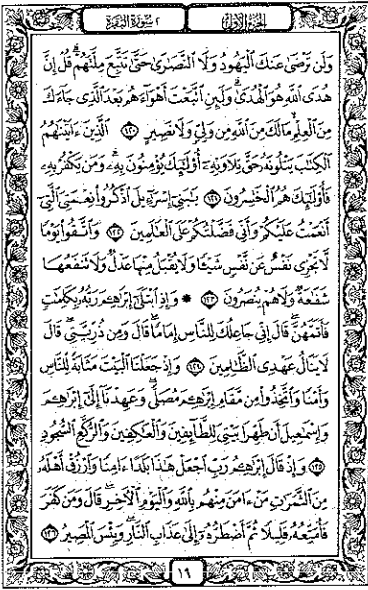 الجزء الأول
٢ سورة البقرة
وَلَن تَرْضَىٰ عَنكَ ٱلْيَهُودُ وَلَا ٱلنَّصَٰرَىٰ حَتَّىٰ تَتَّبِعَ مِلَّتَهُمْ ۗ قُلْ إِنَّ
هُدَى ٱللَّهِ هُوَ ٱلْهُدَىٰ ۗ وَلَئِنِ ٱتَّبَعْتَ أَهْوَآءَهُم بَعْدَ ٱلَّذِى جَآءَكَ
مِنَ ٱلْعِلْمِ ۙ مَا لَكَ مِنَ ٱللَّهِ مِن وَلِىٍّ وَلَا نَصِيرٍ ١٢٠ ٱلَّذِينَ ءَاتَيْنَٰهُمُ
ٱلْكِتَٰبَ يَتْلُونَهُۥ حَقَّ تِلَاوَتِهِۦٓ أُو۟لَٰٓئِكَ يُؤْمِنُونَ بِهِۦ ۗ وَمَن يَكْفُرْ بِهِۦ
فَأُو۟لَٰٓئِكَ هُمُ ٱلْخَٰسِرُونَ ١٢١ يَٰبَنِىٓ إِسْرَٰٓءِيلَ ٱذْكُرُوا۟ نِعْمَتِىَ ٱلَّتِىٓ
أَنْعَمْتُ عَلَيْكُمْ وَأَنِّى فَضَّلْتُكُمْ عَلَى ٱلْعَٰلَمِينَ ١٢٢ وَٱتَّقُوا۟ يَوْمًا
لَّا تَجْزِى نَفْسٌ عَن نَّفْسٍ شَيْـًٔا وَلَا يُقْبَلُ مِنْهَا عَدْلٌ وَلَا تَنفَعُهَا
شَفَٰعَةٌ وَلَا هُمْ يُنصَرُونَ ١٢٣ ۞ وَإِذِ ٱبْتَلَىٰٓ إِبْرَٰهِـۧمَ رَبُّهُۥ بِكَلِمَٰتٍ
فَأَتَمَّهُنَّ ۖ قَالَ إِنِّى جَاعِلُكَ لِلنَّاسِ إِمَامًا ۖ قَالَ وَمِن ذُرِّيَّتِى ۖ قَالَ
لَا يَنَالُ عَهْدِى ٱلظَّٰلِمِينَ ١٢٤ وَإِذْ جَعَلْنَا ٱلْبَيْتَ مَثَابَةً لِّلنَّاسِ
وَأَمْنًا وَٱتَّخِذُوا۟ مِن مَّقَامِ إِبْرَٰهِـۧمَ مُصَلًّى ۖ وَعَهِدْنَآ إِلَىٰٓ إِبْرَٰهِـۧمَ
وَإِسْمَٰعِيلَ أَن طَهِّرَا بَيْتِىَ لِلطَّآئِفِينَ وَٱلْعَٰكِفِينَ وَٱلرُّكَّعِ ٱلسُّجُودِ
١٢٥ وَإِذْ قَالَ إِبْرَٰهِـۧمُ رَبِّ ٱجْعَلْ هَٰذَا بَلَدًا ءَامِنًا وَٱرْزُقْ أَهْلَهُۥ
مِنَ ٱلثَّمَرَٰتِ مَنْ ءَامَنَ مِنْهُم بِٱللَّهِ وَٱلْيَوْمِ ٱلْءَاخِرِ ۖ قَالَ وَمَن كَفَرَ
فَأُمَتِّعُهُۥ قَلِيلًا ثُمَّ أَضْطَرُّهُۥٓ إِلَىٰ عَذَابِ ٱلنَّارِ ۖ وَبِئْسَ ٱلْمَصِيرُ ١٢٦
١٩